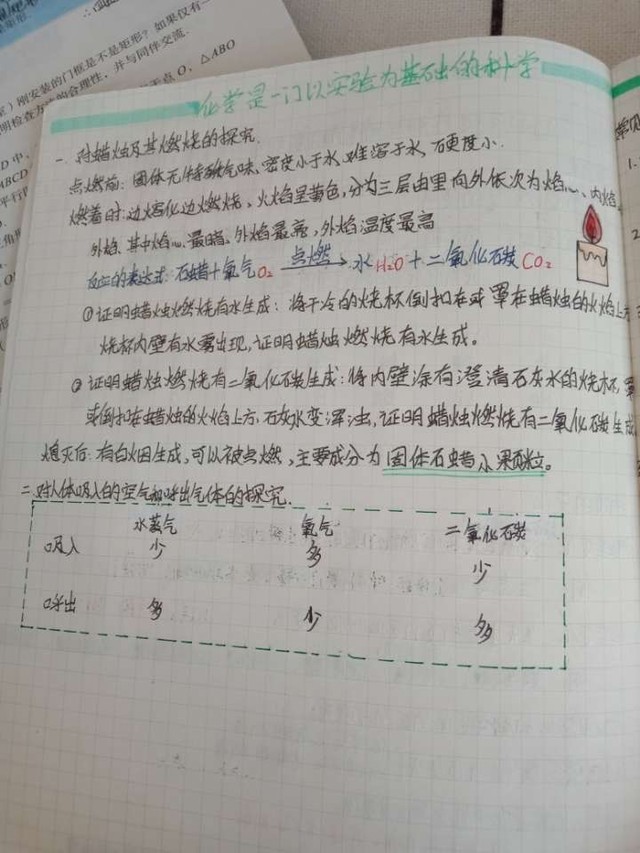 刚安装的门框是不是矩形？如果仅有一
的合理性，并与同伴交流.
点 O，△ABO
化学是一门以实验为基础的科学
一. 对蜡烛及其燃烧的探究.
点燃前：固体无特殊气味，密度小于水，难溶于水，硬度小.
燃着时：边熔化边燃烧、火焰呈黄色，分为三层由里向外依次为焰心、内焰、
外焰. 其中焰心最暗、外焰最亮，外焰温度最高
反应的表达式：石蜡+氧气O₂ 点燃→ 水H₂O+二氧化石炭CO₂
①证明蜡烛燃烧有水生成：将干冷的烧杯倒扣在或罩在蜡烛的火焰上方
烧杯内壁有水雾出现，证明蜡烛燃烧有水生成。
②证明蜡烛燃烧有二氧化石炭生成：将内壁涂有澄清石灰水的烧杯罩
或倒扣在蜡烛的火焰上方，石灰水变浑浊，证明蜡烛燃烧有二氧化石炭生成
熄灭后：有白烟生成，可以被点燃，主要成分为固体石蜡小颗粒。
二. 对人体吸入的空气和呼出气体的探究.
水蒸气 氧气 二氧化石炭
吸入 少 多 少
呼出 多 少 多